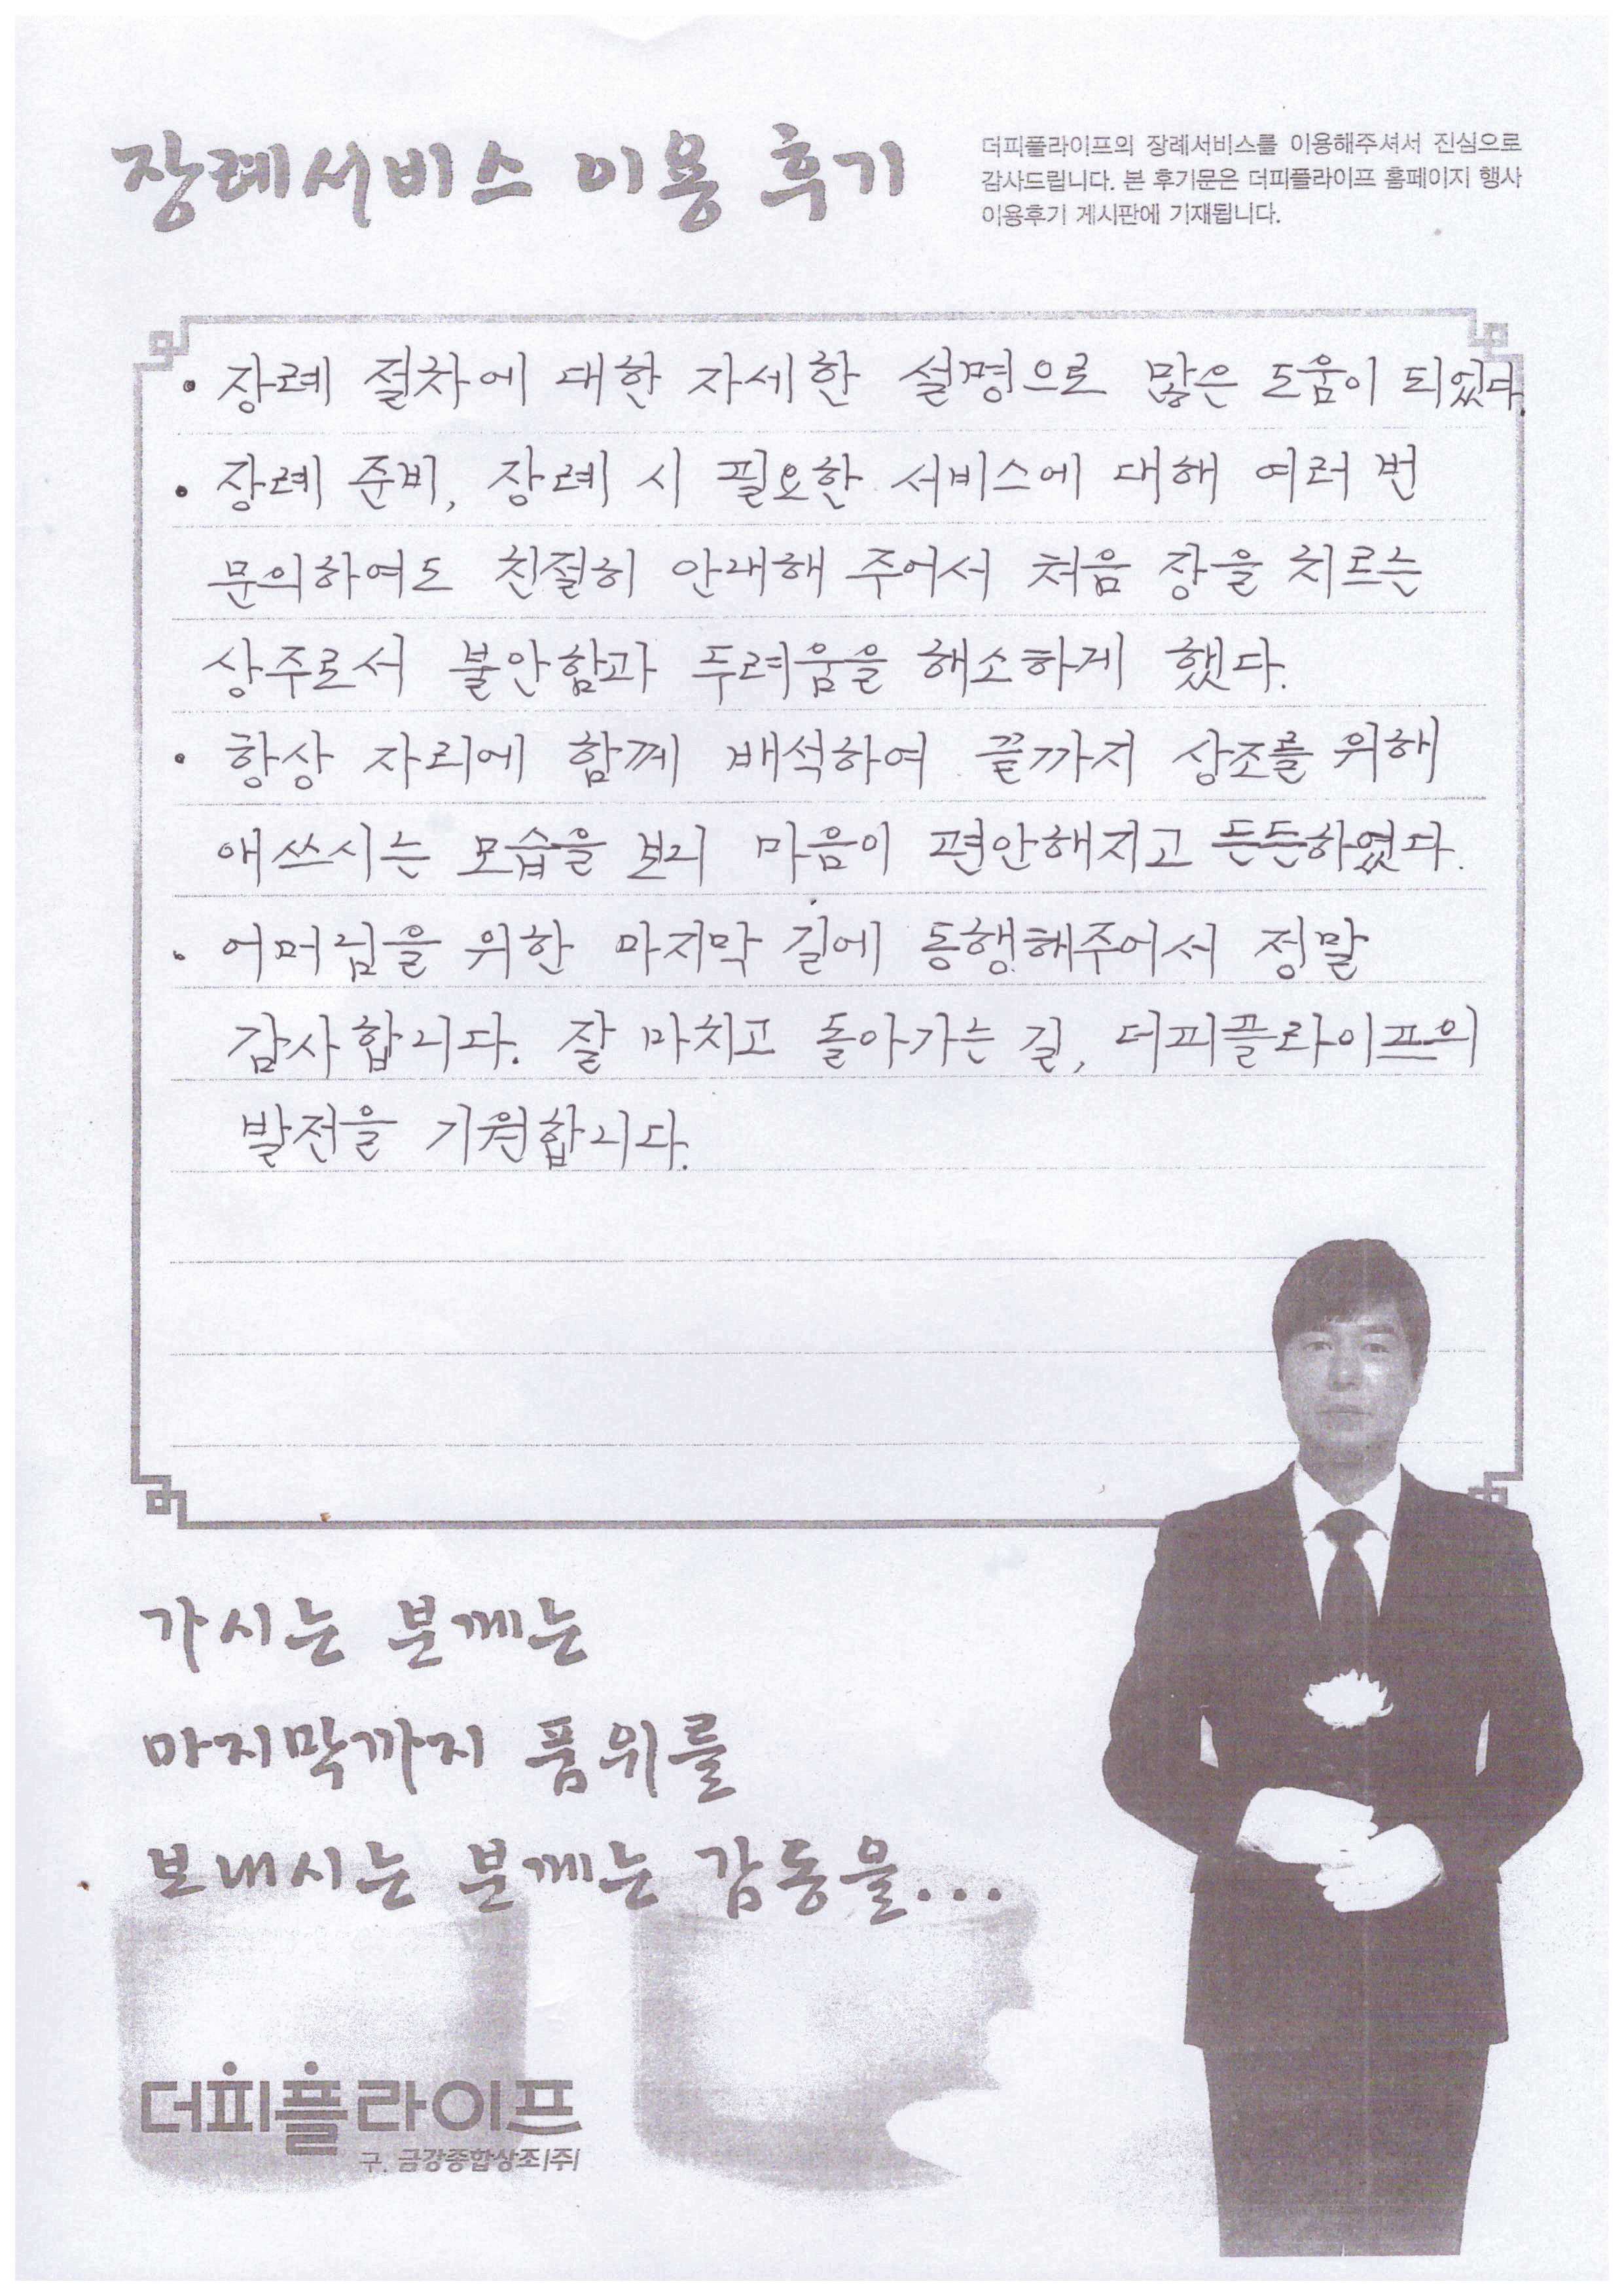 장례서비스 이용 후기
더피플라이프의 장례서비스를 이용해주셔서 진심으로
감사드립니다. 본 후기문은 더피플라이프 홈페이지 행사
이용후기 게시판에 기재됩니다.
• 장례 절차에 대한 자세한 설명으로 많은 도움이 되었다.
• 장례 준비, 장례 시 필요한 서비스에 대해 여러 번
문의하여도 친절히 안내해 주어서 처음 장을 치르는
상주로서 불안함과 두려움을 해소하게 했다.
• 항상 자리에 함께 배석하여 끝까지 상조를 위해
애쓰시는 모습을 보니 마음이 편안해지고 든든하였다.
• 어머님을 위한 마지막 길에 동행해주어서 정말
감사합니다. 잘 마치고 돌아가는 길, 더피플라이프의
발전을 기원합니다.
가시는 분께는
마지막까지 품위를
보내시는 분께는 감동을...
더피플라이프
구. 금강종합상조(주)